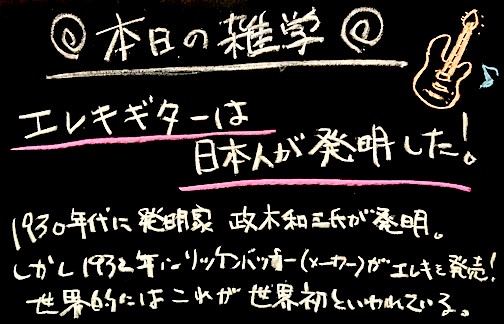 ◎本日の雑学◎
エレキギターは
日本人が発明した!
1930年代に発明家 政木和三氏が発明。
しかし1932年にリッケンバッカー(メーカー)がエレキを発売!
世界的にはこれが世界初といわれている。